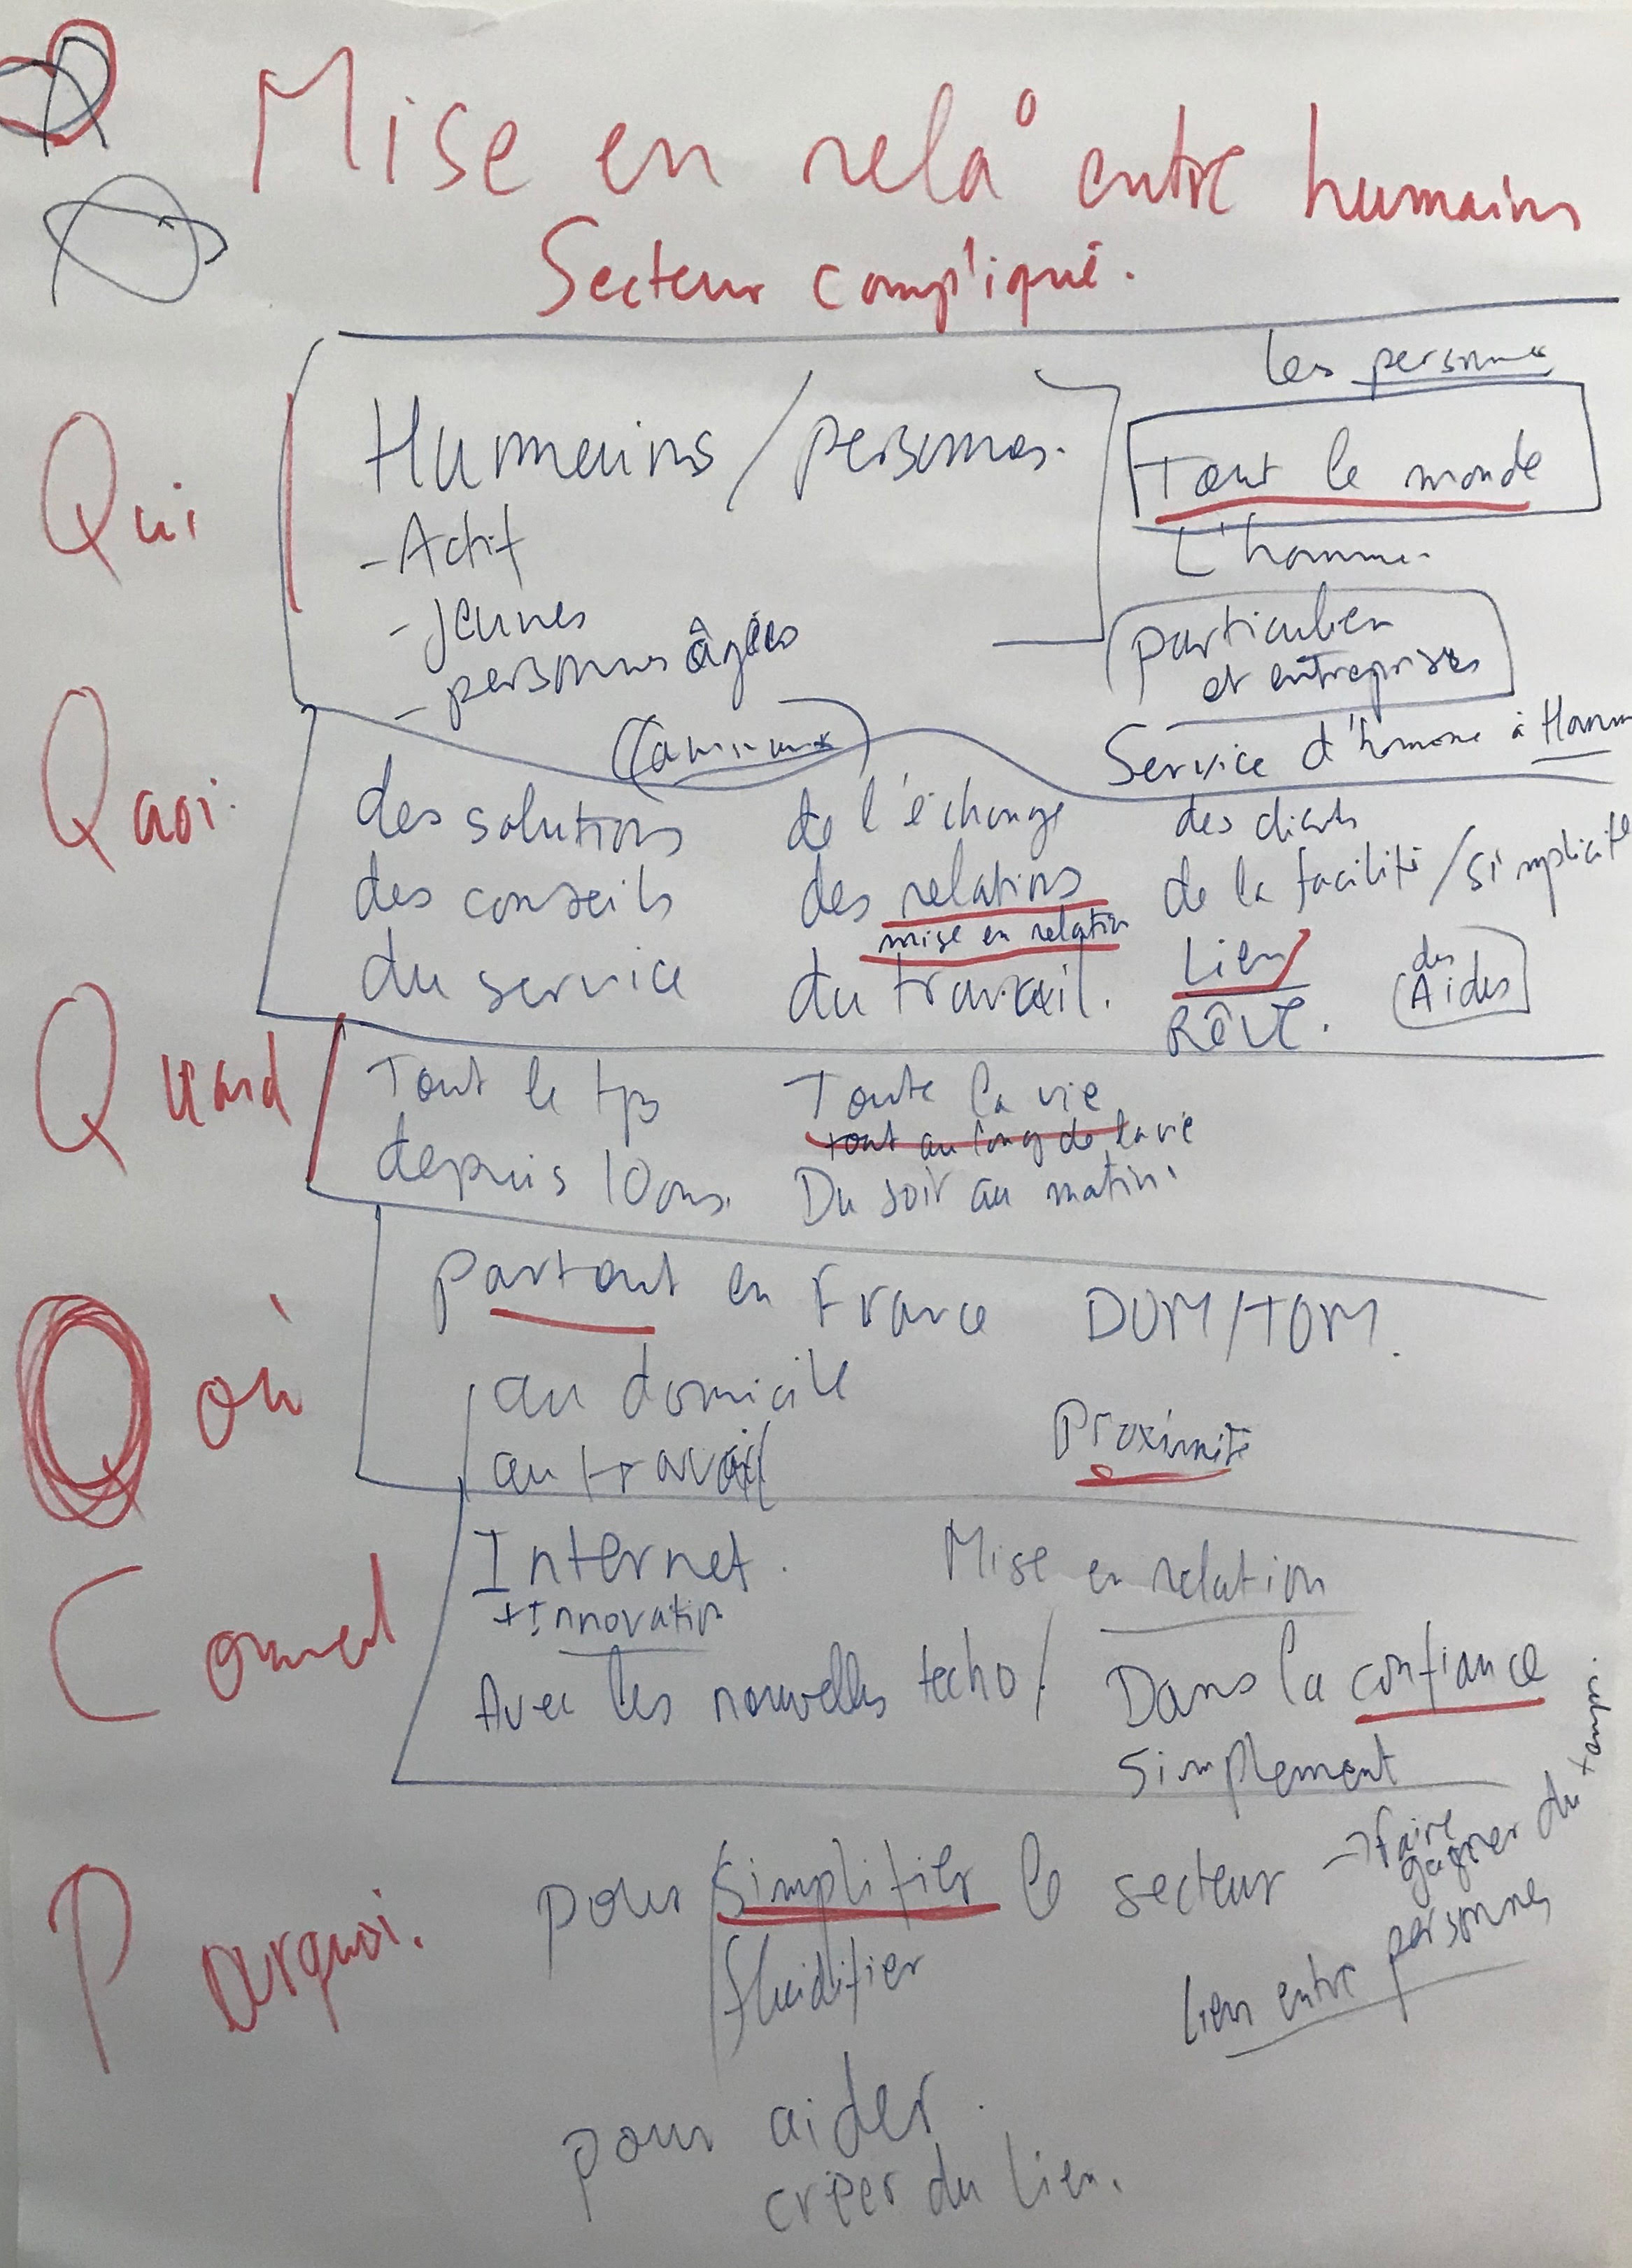 Mise en rela° entre humains
Secteur compliqué.
les personnes
Qui
Humains / personnes.
- Actif
- jeunes
- personnes âgées
Tout le monde
L'homme.
particuliers
et entreprises
Service d'homme à Homm
Quoi
des solutions
des conseils
du service
de l'échange
des relations
mise en relation
du travail.
des clients
de la facilité / simplicité
Lien
Rêve.
des
Aides
Quand
Tout le tps
depuis 10 ans.
Toute la vie
tout au long de la vie
Du soir au matin.
où
partout en France DOM/TOM.
au domicile
au travail
Proximité
Comment
Internet.
+ Innovation
Avec les nouvelles techo /
Mise en relation
Dans la confiance
simplement
Pourquoi.
pour simplifier le secteur
fluidifier
→ faire
gagner du temps.
lien entre personnes
pour aider.
créer du lien.